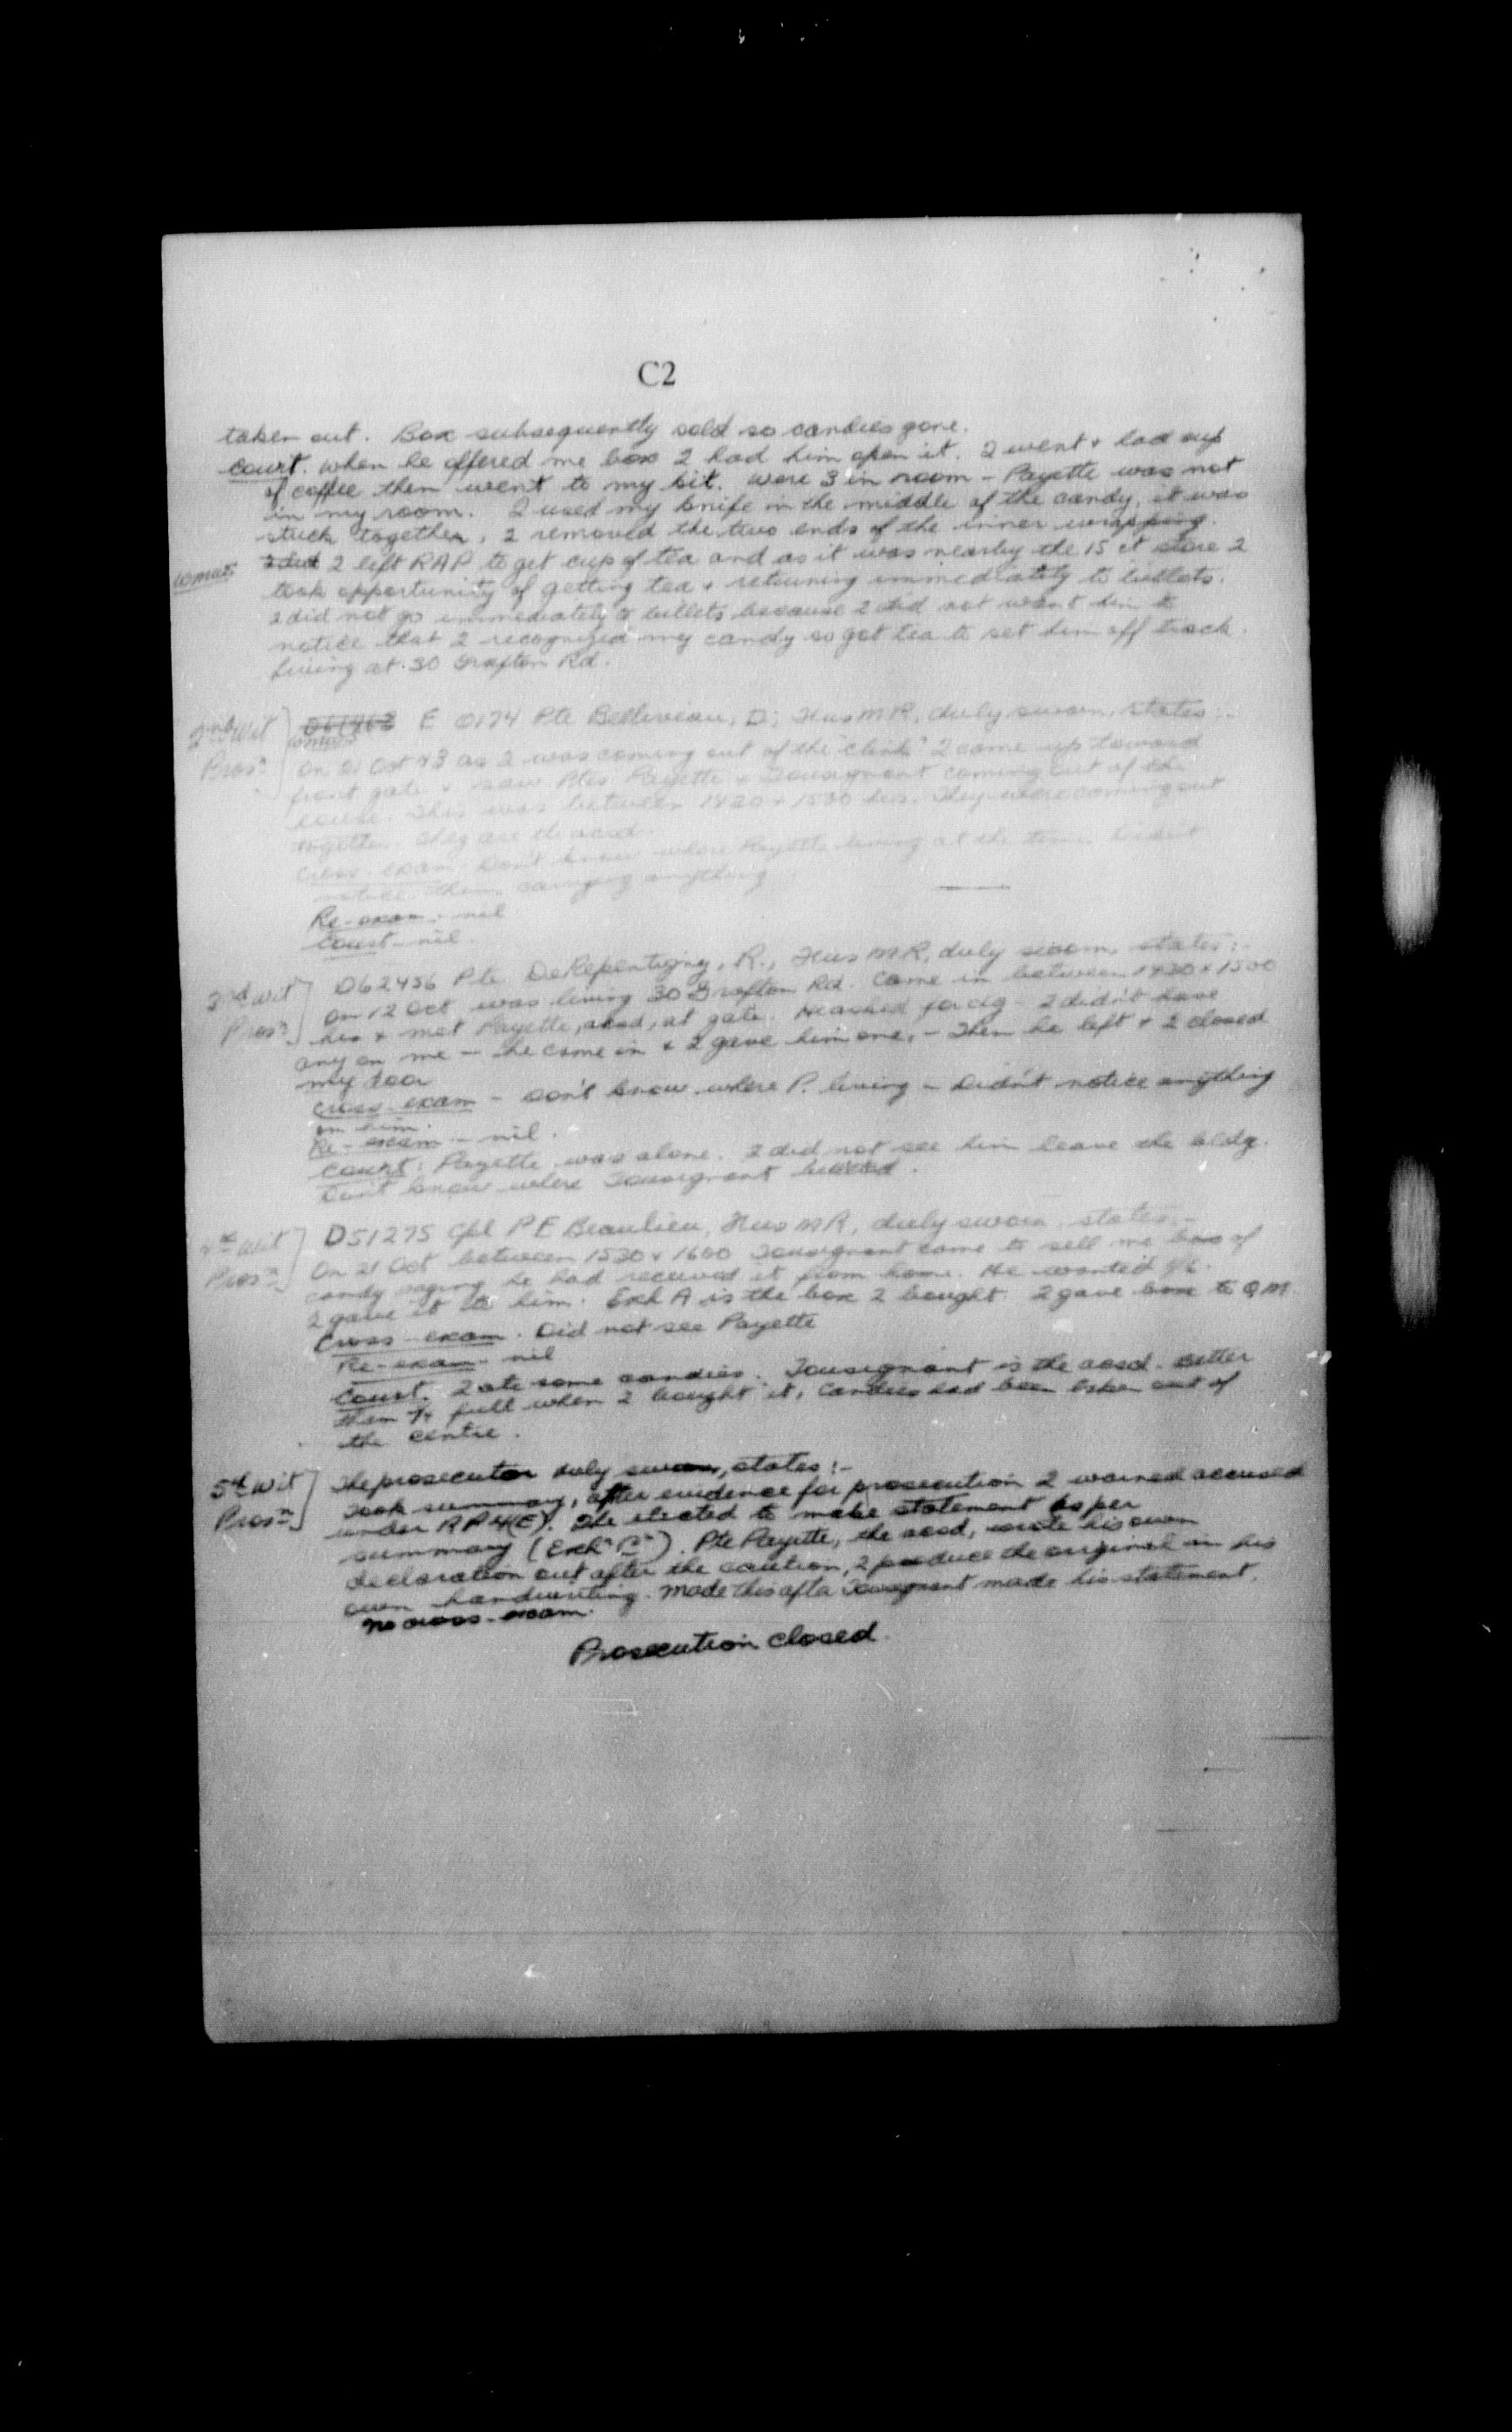 C2
taken out. Box subsequently sold so candies gone.
Court. When he offered me box I had him open it. I went & had cup
of coffee then went to my kit. Were 3 in room - Payette was not
in my room. I used my knife in the middle of the candy, it was
stuck together, I removed the two ends of the inner wrapping.
I did I left RAP to get cup of tea and as it was nearby the 15 ct store I
took opportunity of getting tea & returning immediately to billets.
I did not go immediately to billets because I did not want him to
notice that I recognized my candy so got tea to set him off track.
Living at 30 Grafton Rd.
2nd Wit Prosn
E 0174 Pte Belliveau, D; Fus M R, duly sworn, states:-
On 21 Oct 43 as I was coming out of the "clink" I came up toward
front gate & saw Ptes Payette & Tousignant coming out of the
house. This was between 1430 & 1500 hrs. They were coming out
together. They are the accd.
Cross-exam. Don't know where Payette living at the time. Didn't
notice them carrying anything.
Re-exam - nil
Court - nil.
3rd Wit Prosn
D62456 Pte DeRepentigny, R., Fus M R, duly sworn, states:-
On 12 Oct was living 30 Grafton Rd. Came in between 1430 & 1500
hrs & met Payette, accd, at gate. He asked for cig - I didn't have
any on me - he came in & I gave him one, - Then he left & I closed
my door
Cross-exam - Don't know where P. living - Didn't notice anything
on him.
Re-exam - nil.
Court: Payette was alone. I did not see him leave the bldg.
Don't know where Tousignant
4th Wit Prosn
D51275 Cpl P E Beaulieu, Fus M R, duly sworn, states:-
On 21 Oct between 1530 & 1600 Tousignant came to sell me box of
candy saying he had received it from home. He wanted
I gave it to him. Exh A is the box I bought. I gave box to QM.
Cross-exam. Did not see Payette
Re-exam - nil
Court. I ate some candies. Tousignant is the accd. Better
than full when I bought it, Candies had been taken out of
the centre.
5th Wit Prosn
The prosecutor duly sworn, states:-
Took summary, after evidence for prosecution I warned accused
under RP4(E). He elected to make statement as per
summary (Exh ). Pte Payette, the accd, wrote his own
declaration out after the caution, I produce the original in his
own handwriting. Made this after Tousignant made his statement.
No cross-exam.
Prosecution closed.